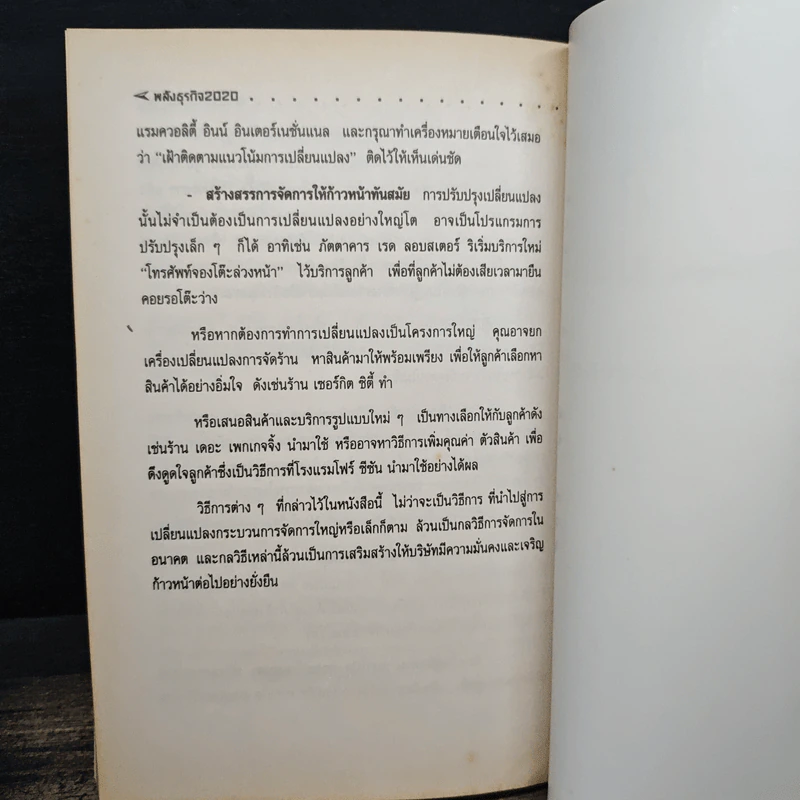 พลังธุรกิจ2020
แรมควอลิตี้ อินน์ อินเตอร์เนชั่นแนล และกรุณาทำเครื่องหมายเตือนใจไว้เสมอ
ว่า “เฝ้าติดตามแนวโน้มการเปลี่ยนแปลง” ติดไว้ให้เห็นเด่นชัด
- สร้างสรรการจัดการให้ก้าวหน้าทันสมัย การปรับปรุงเปลี่ยนแปลง
นั้นไม่จำเป็นต้องเป็นการเปลี่ยนแปลงอย่างใหญ่โต อาจเป็นโปรแกรมการ
ปรับปรุงเล็ก ๆ ก็ได้ อาทิเช่น ภัตตาคาร เรด ลอบสเตอร์ ริเริ่มบริการใหม่
“โทรศัพท์จองโต๊ะล่วงหน้า” ไว้บริการลูกค้า เพื่อที่ลูกค้าไม่ต้องเสียเวลามายืน
คอยรอโต๊ะว่าง
หรือหากต้องการทำการเปลี่ยนแปลงเป็นโครงการใหญ่ คุณอาจยก
เครื่องเปลี่ยนแปลงการจัดร้าน หาสินค้ามาให้พร้อมเพรียง เพื่อให้ลูกค้าเลือกหา
สินค้าได้อย่างอิ่มใจ ดังเช่นร้าน เซอร์กิต ซิตี้ ทำ
หรือเสนอสินค้าและบริการรูปแบบใหม่ ๆ เป็นทางเลือกให้กับลูกค้าดัง
เช่นร้าน เดอะ เพกเกจจิ้ง นำมาใช้ หรืออาจหาวิธีการเพิ่มคุณค่า ตัวสินค้า เพื่อ
ดึงดูดใจลูกค้าซึ่งเป็นวิธีการที่โรงแรมโฟร์ ซีซัน นำมาใช้อย่างได้ผล
วิธีการต่าง ๆ ที่กล่าวไว้ในหนังสือนี้ ไม่ว่าจะเป็นวิธีการ ที่นำไปสู่การ
เปลี่ยนแปลงกระบวนการจัดการใหญ่หรือเล็กก็ตาม ล้วนเป็นกลวิธีการจัดการใน
อนาคต และกลวิธีเหล่านี้ล้วนเป็นการเสริมสร้างให้บริษัทมีความมั่นคงและเจริญ
ก้าวหน้าต่อไปอย่างยั่งยืน